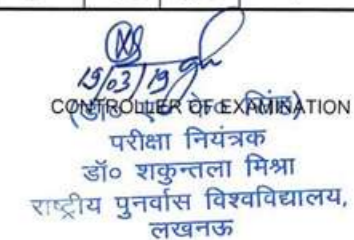 19/03/19
CONTROLLER OF EXAMINATION
(डॉ० सिंह)
परीक्षा नियंत्रक
डॉ० शकुन्तला मिश्रा
राष्ट्रीय पुनर्वास विश्वविद्यालय,
लखनऊ